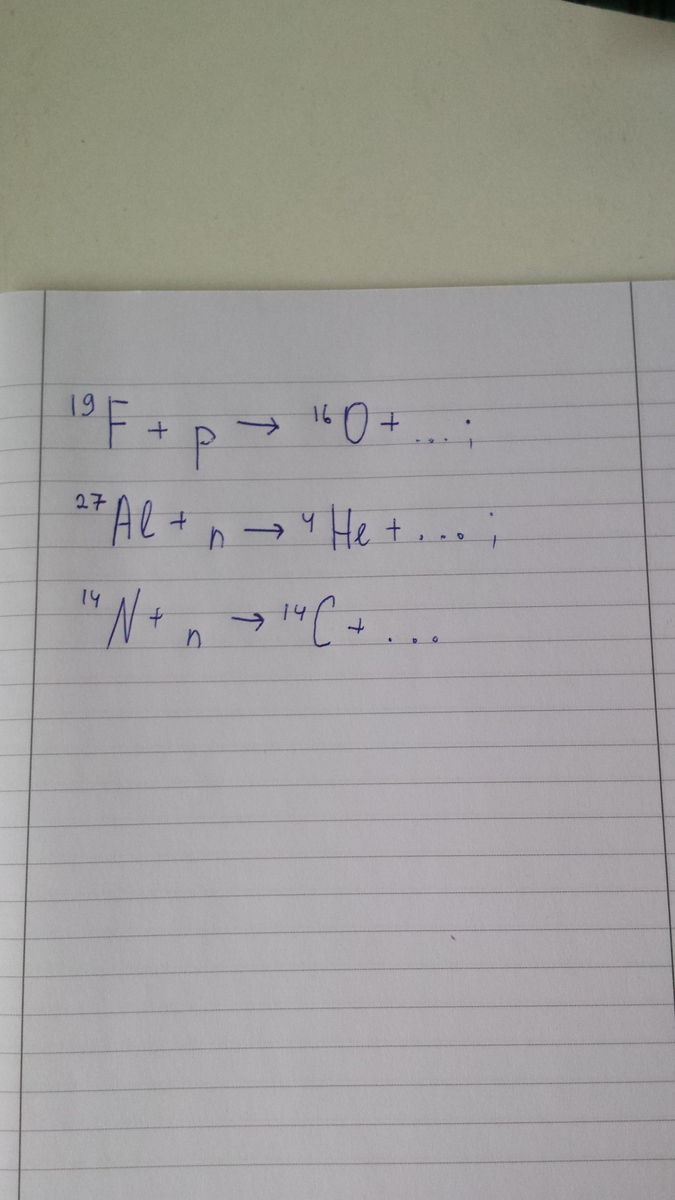 ¹⁹F + p → ¹⁶O + ... ;
²⁷Al + n → ⁴He + ... ;
¹⁴N + n → ¹⁴C + ...